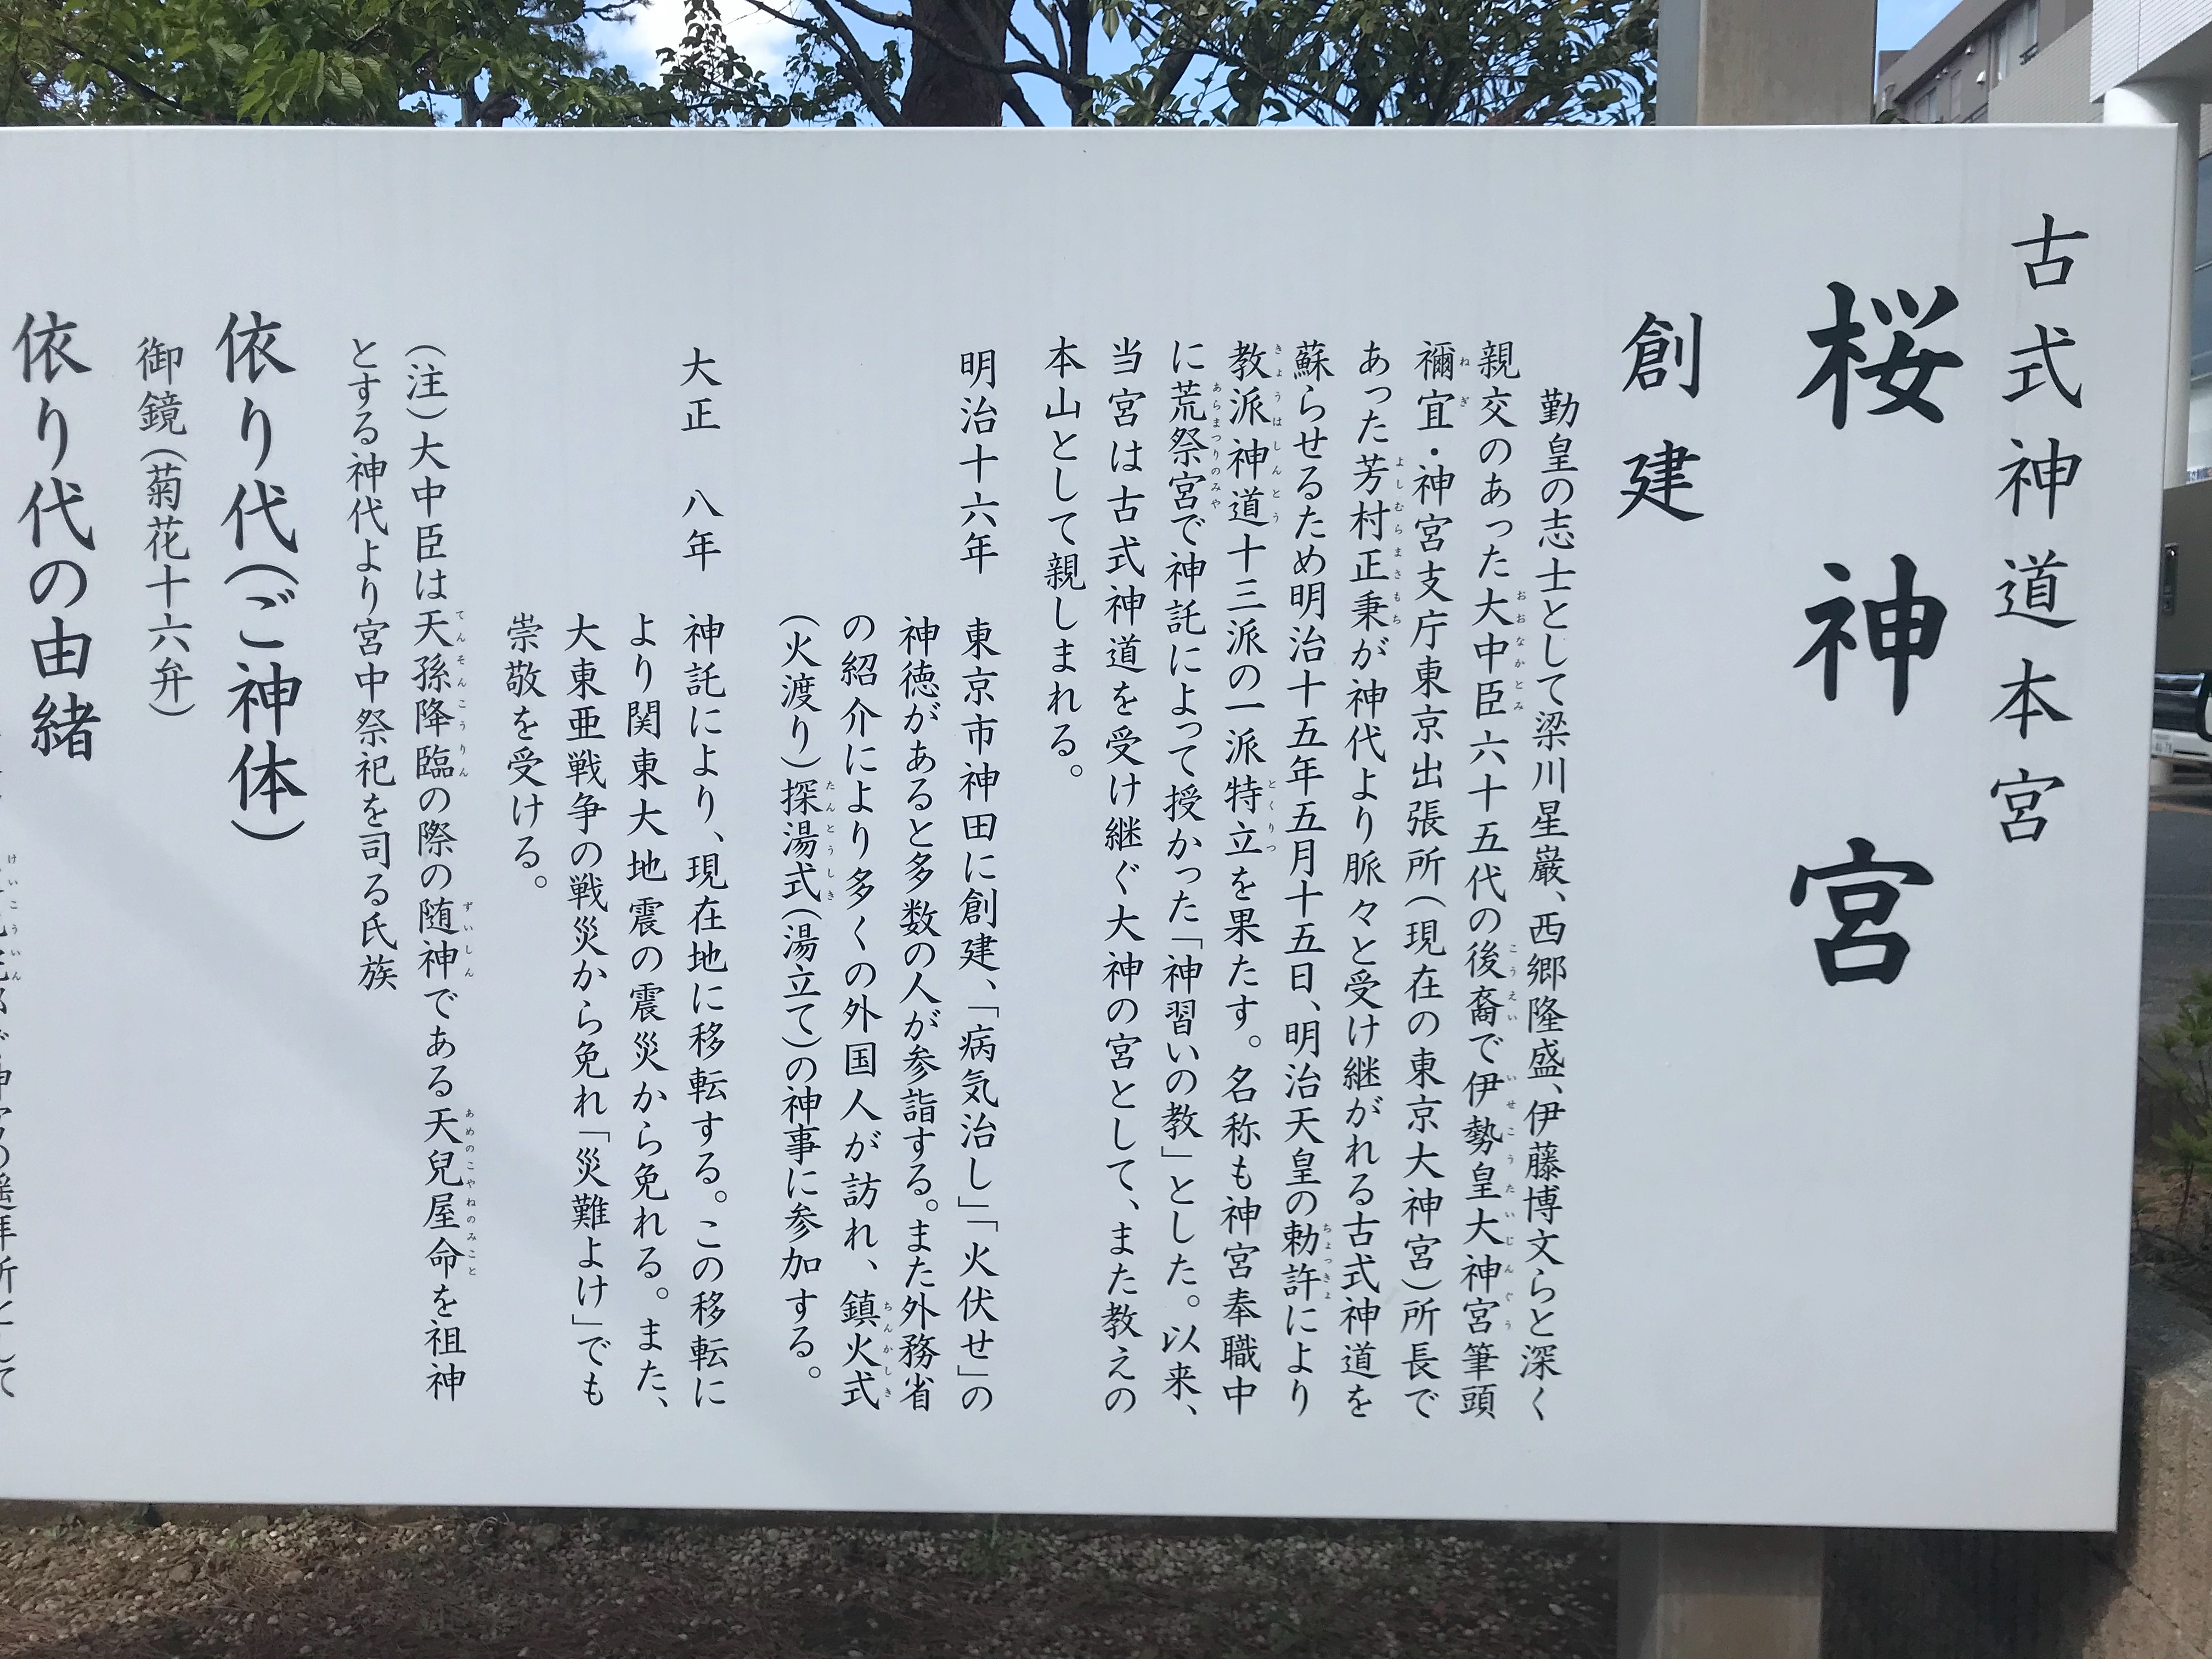 古式神道本宮
桜神宮
創建
勤皇の志士として梁川星巌、西郷隆盛、伊藤博文らと深く
親交のあった大中臣六十五代の後裔で伊勢皇大神宮筆頭
禰宜・神宮支庁東京出張所(現在の東京大神宮)所長で
あった芳村正秉が神代より脈々と受け継がれる古式神道を
蘇らせるため明治十五年五月十五日、明治天皇の勅許により
教派神道十三派の一派特立を果たす。名称も神宮奉職中
に荒祭宮で神託によって授かった「神習いの教」とした。以来、
当宮は古式神道を受け継ぐ大神の宮として、また教えの
本山として親しまれる。
明治十六年 東京市神田に創建、「病気治し」「火伏せ」の
神徳があると多数の人が参詣する。また外務省
の紹介により多くの外国人が訪れ、鎮火式
(火渡り)探湯式(湯立て)の神事に参加する。
大正 八年 神託により、現在地に移転する。この移転に
より関東大地震の震災から免れる。また、
大東亜戦争の戦災から免れ「災難よけ」でも
崇敬を受ける。
(注)大中臣は天孫降臨の際の随神である天兒屋命を祖神
とする神代より宮中祭祀を司る氏族
依り代(ご神体)
御鏡(菊花十六弁)
依り代の由緒